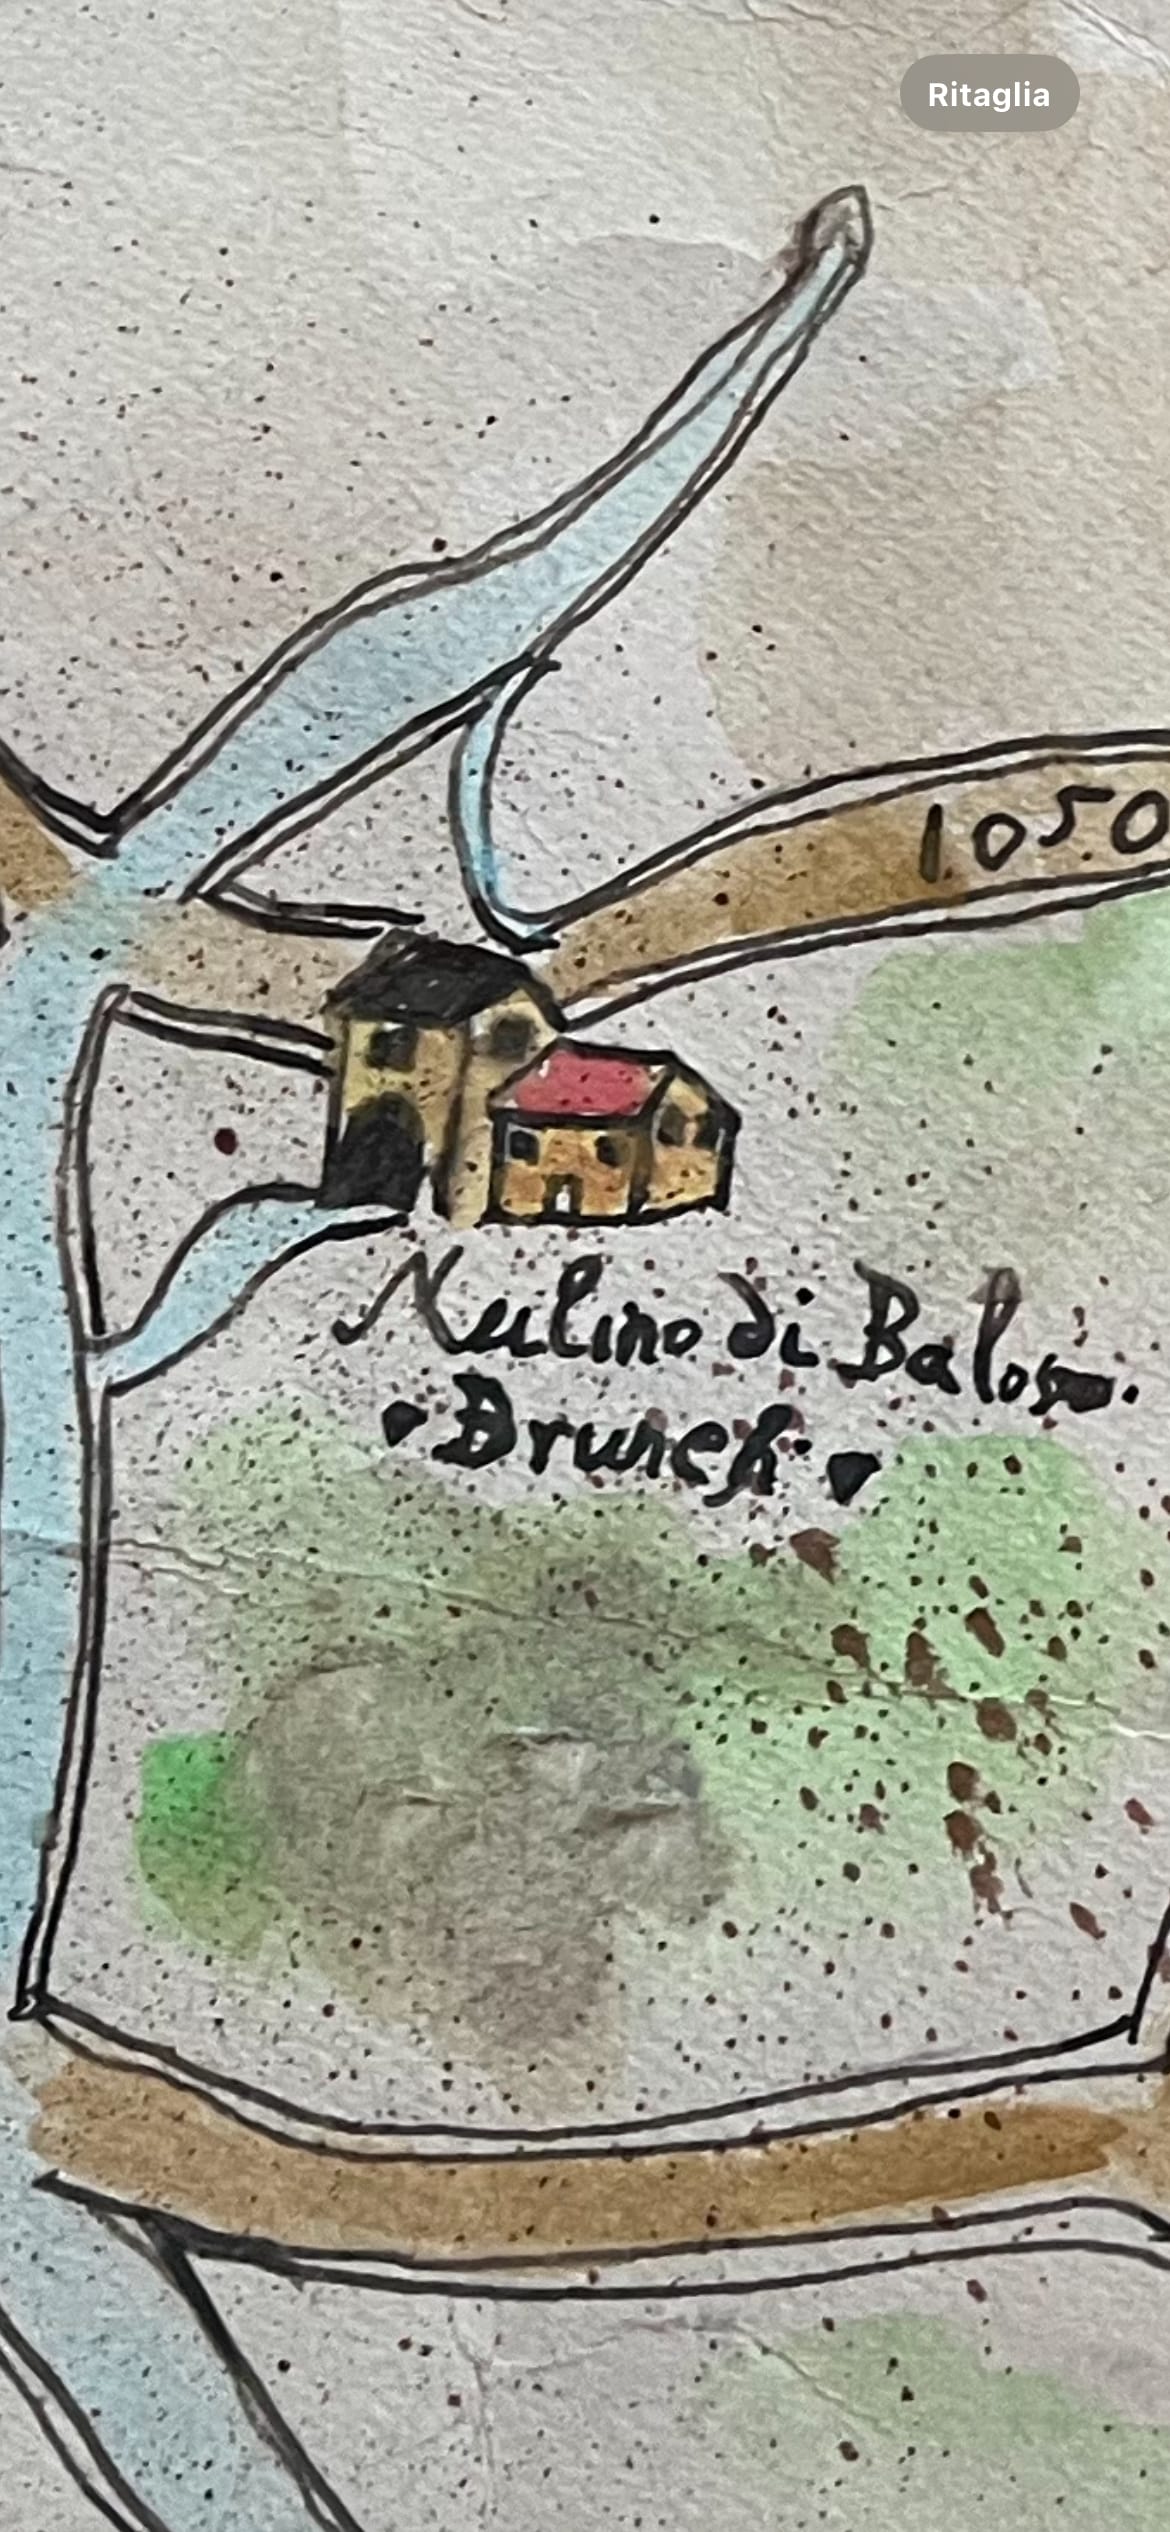 Ritaglia
1050
Mulino di
Brunch